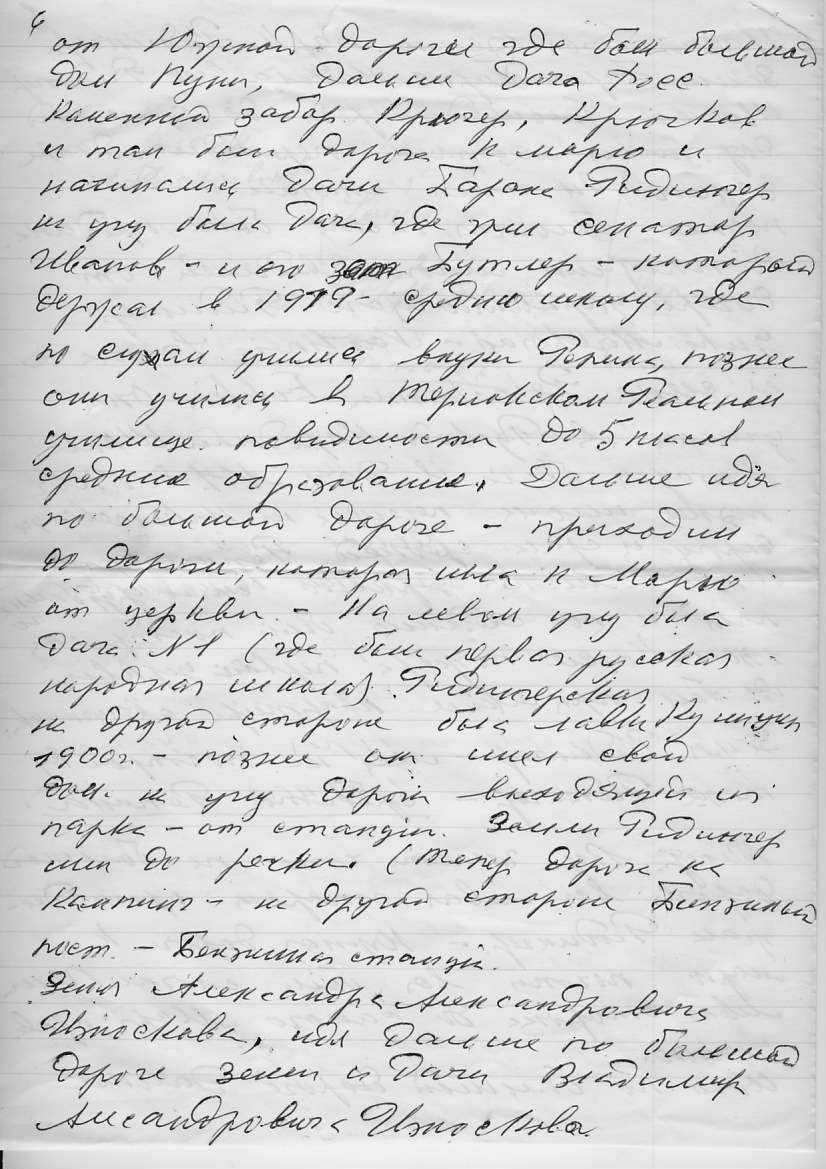 6
от Южной дороги где был большой
дом Пуни, Дальше Дача Фосс.
Каменный забор. Крюгер, Крючков
и там был дорога к морю и
начинались Дачи Барона Ридингер
на углу была Дача, где жил сенатор
Иванов - и его зят Бутлер - который
держал в 1919 - среднюю школу, где
по случаи учились внуки Репина, позднее
они учились в Териокском Реальном
училище. повидимости до 5 класов
средние образование. Дальше идя
по большой дороге - приходим
до дороги, которая шла к Морю
от церкви. - На левом углу была
Дача N1 (где была первая русская
народная школа) Ридингерская
на другой стороне была лавки
1900г. - позднее он имел свой
дом. на углу дороги выходящей из
парка - от станции. Земли Ридингер
шли до речки. (Тепер дорога на
Кампинг - на другой стороне Бензинный
пост. - Бензинная станция.
Земля Александра Александровича
Износкова, идя Дальше по большой
дороге земля и Дачи Владимир
Алсандровича Износкова.